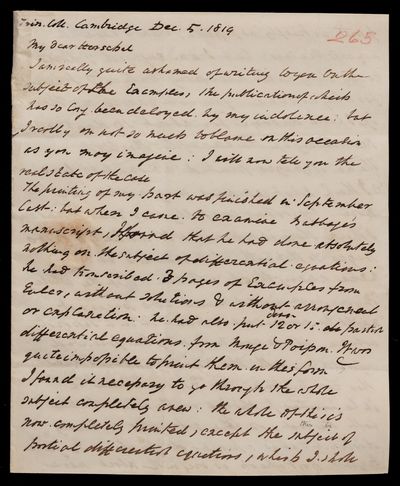 Trin. Coll. Cambridge Dec. 5. 1819
265
My dear Herschel
I am really quite ashamed of writing to you on the
subject of the Examples, the publication of which
has so long been delayed by my indolence: but
I really am not so much to blame on this occasion
as you may imagine: I will now tell you the
real state of the case
The printing of my part was finished in September
last: but when I came to examine Babbage's
manuscript, I found that he had done absolutely
nothing on the subject of differential equations:
he had transcribed 3 pages of Examples from
Euler, without solutions & without arrangement
or explanation: he had also put 12 or 15 on partial
differential equations from Monge & Poisson. It was
quite impossible to print them in this form
I found it necessary to go through the whole
subject completely anew: the whole of this is
now completely printed, except the subject of
partial differential equations, which I shall